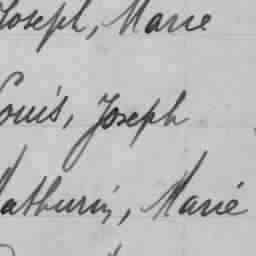 Joseph, Marie
Louis, Joseph
Mathurin, Marie